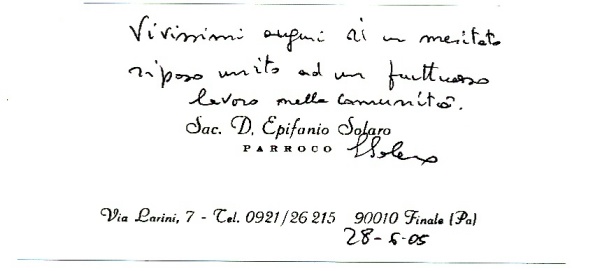 Vivissimi auguri di un meritato
riposo unito ad un fruttuoso
lavoro nella comunità.
Sac. D. Epifanio Solaro
PARROCO ESolaro
Via Larini, 7 - Tel. 0921/26 215 90010 Finale (Pa)
28-6-05